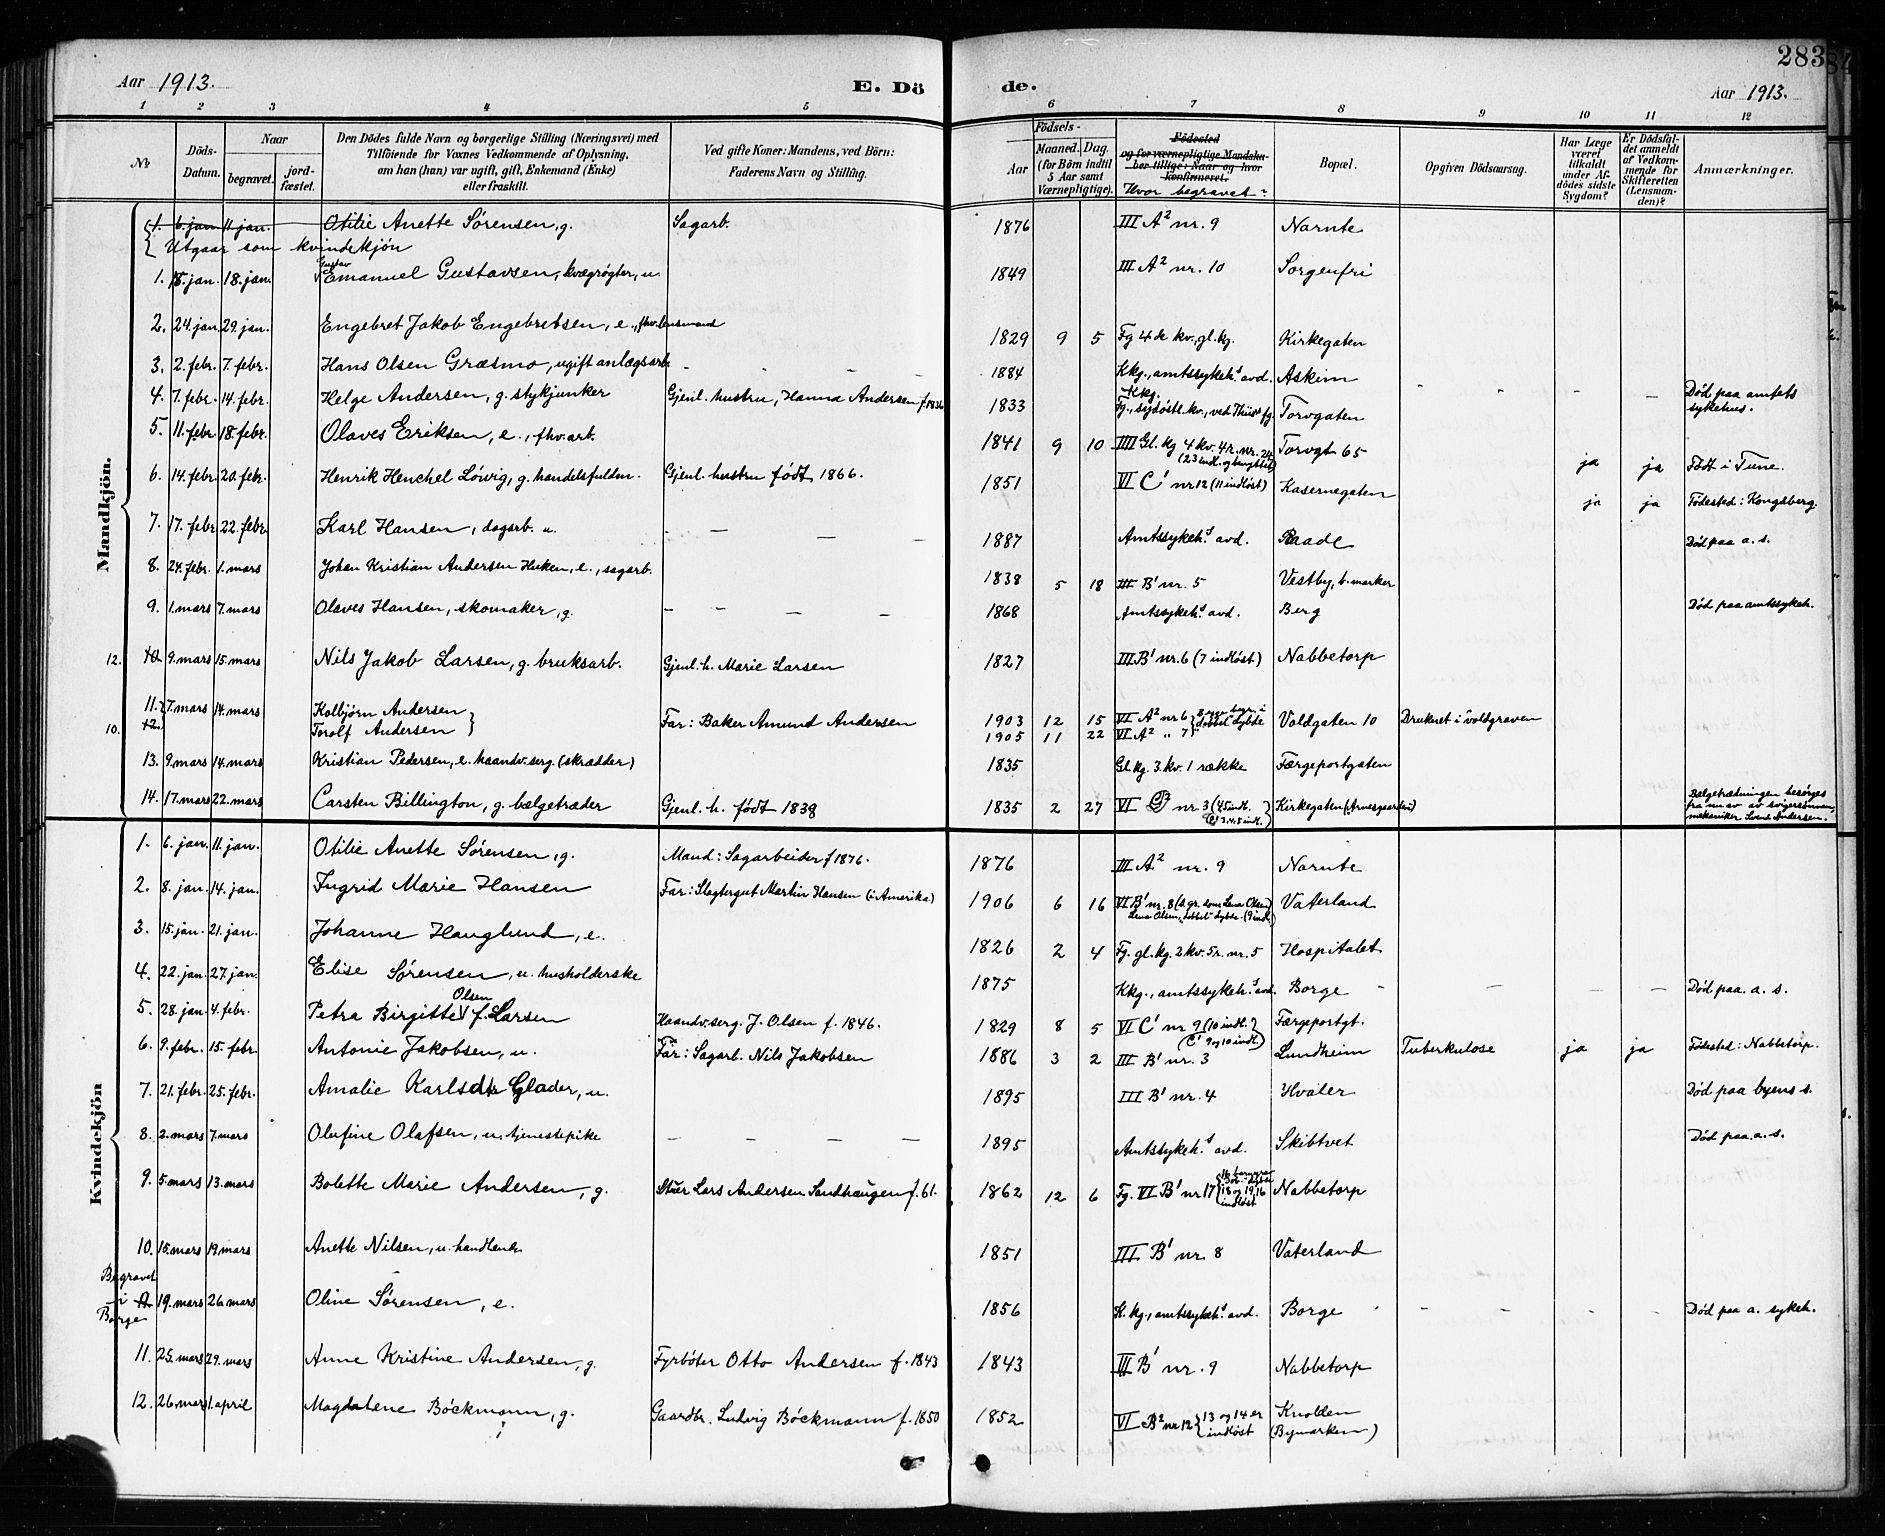 283
Aar 1913.
E. Dö
de.
Aar 1913.
1 2 3 4 5 6 7 8 9 10 11 12
No
Döds-Datum.
Naar
begravet.
jord-fæstet.
Den Dödes fulde Navn og borgerlige Stilling (Næringsvei) med
Tilföiende for Voxnes Vedkommende af Oplysning,
om han (hun) var ugift, gift, Enkemand (Enke)
eller fraskilt.
Ved gifte Koner: Mandens, ved Börn:
Faderens Navn og Stilling.
Födsels-
Aar
Maaned. Dag.
(for Börn indtil
5 Aar samt
Værnepligtige).
Födested
og for værnepligtige Mandskaber tillige: Naar og hvor Konfirmeret.
Hvor begravet?
Bopæl.
Opgiven Dödsaarsag.
Har Læge været tilkaldt under Afdödes sidste Sygdom?
Er Dödsfaldet anmeldt af Vedkommende for Skifteretten (Lensmanden)?
Anmærkninger.
Mandkjön.
1. 6. jan. 11. jan. Otilie Anette Sørensen, g. Sagarb. 1876 III A² nr. 9 Narnte
Utgaar som kvindekjön
Gustav
1. 15. jan. 18. jan. Emanuel Gustavsen, kvægrøgter, u. 1849 III A² nr. 10 Sorgenfri
2. 24. jan. 29. jan. Engebret Jakob Engebretsen, e., fhv. lensmand 1829 9 5 Fg 4de kv., gl. kg. Kirkegaten
3. 2. febr. 7. febr. Hans Olsen Græsmo, ugift anlægsarb. 1884 Kkg., amtssykeh.s avd. Askim Död paa amtets sykehus.
4. 7. febr. 14. febr. Helge Andersen, g. stykjunker Gjenl. hustru, Hanna Andersen f. 1836 1833 Kkg. Fg., sydöstl. kv., ved fg. Torvgaten
5. 11. febr. 18. febr. Olaves Eriksen, e., fhv. arb. 1841 9 10 Gl. kg 4 kv. 4 r. nr. 24 (23 indl. og benyttet) Torvgt 65 ja ja Födt i Tune.
6. 14. febr. 20. febr. Henrik Henchel Lövig, g. handelsfuldm. Gjenl. hustru födt 1866. 1851 VI C' nr 12 (11 indlöst) Kasernegaten ja ja Födested: Kongsberg.
7. 17. febr. 22. febr. Karl Hansen, dagarb. u. 1887 Amtssykeh.s avd. Raade Död paa a. s.
8. 24. febr. 1. mars Johan Kristian Andersen Huken, e., sagarb. 1838 5 18 III B' nr. 5 Vestby, b. marker
9. 1. mars 7. mars Olaves Hansen, skomaker, g. 1868 Amtssykeh.s avd. Berg Död paa amtssykeh.
12. 10. 9. mars 15. mars Nils Jakob Larsen, g. bruksarb. Gjenl. h. Marie Larsen 1827 III B' nr. 6 (7 indlöst) Nabbetorp
11. 7. mars 14. mars Kolbjörn Andersen Far: Baker Amund Andersen 1903 12 15 VI A² nr 6 dobbel dybde Voldgaten 10 Druknet i voldgraven
10. 12. Torolf Andersen 1905 11 22 VI A² " 7
13. 9. mars 14. mars Kristian Pedersen, e. haandv. serg. (skrædder) 1835 Gl. kg. 3. kv. 1 række Færgeportgaten
14. 17. mars 22. mars Carsten Billington, g. bælgetræder Gjenl. h. födt 1838 1835 2 27 VI nr. 3 (45 indl. C' 3.4.5 indl.) Kirkegaten (Arnesgaarden) Bælgetrædningen besörges fra nu av av svigersönnen, mekaniker Svend Andersen.
Kvindekjön
1. 6. jan. 11. jan. Otilie Anette Sørensen, g. Mand: Sagarbeider f 1876. 1876 III A² nr. 9 Narnte
2. 8. jan. 14. jan. Ingrid Marie Hansen Far: Slagtergut Martin Hansen (i Amerika) 1906 6 16 VI B' nr. 8 (a gr. som Lena Olsen) Lena Olsen, dobbel dybde. (9 indl.) Vaterland
3. 15. jan. 21. jan. Johanne Hauglund, e. 1826 2 4 Fg. gl. kg. 2 kv. 5 r. nr. 5 Hospitalet
4. 22. jan. 27. jan. Elise Sørensen, u. husholderske 1875 Kkg., amtssykeh.s avd. Borge Död paa. a. s.
Olsen
5. 28. jan. 4. febr. Petra Birgitte f. Larsen Haandv. serg. J. Olsen f. 1846. 1829 8 5 VI C' nr 9 (10 indl. C' 9 og 10 indl.) Færgeportgt.
6. 9. febr. 15. febr. Antonie Jakobsen, u. Far: Sagarb. Nils Jakobsen 1886 3 2 III B' nr. 3 Lundheim Tuberkulose ja ja Födested: Nabbetorp.
7. 21. febr. 25. febr. Amalie Karlsdtr Glader, u. 1895 III B' nr. 4 Hvaler Död paa byens s.
8. 2. mars 7. mars Olufine Olafsen, u. tjenestepike 1895 Amtssykeh.s avd. Skibtvet Död paa. a. s.
9. 5. mars 13. mars Bolette Marie Andersen, g. Stuer Lars Andersen Sandhaugen f. 61. 1862 12 6 Fg. VI B' nr 17 18 og 19, 16 indlöst Nabbetorp
10. 15. mars 19. mars Anette Nilsen, u. handlende 1851 III B' nr. 8 Vaterland
Begravet i Borge 11 19. mars 26 mars Oline Sørensen, e. 1856 K. kg., amtssykeh.s avd. Borge Död paa a. sykeh.
11. 25. mars 29. mars Anne Kristine Andersen, g. Fyrböter Otto Andersen f. 1843 1843 III B' nr. 9 Nabbetorp
12. 26. mars 1. april Magdalene Böckmann, g. Gaardbr. Ludvig Böckmann f. 1850 1852 VI B² nr 12 13 og 14 er indlöst Knolden (Bymarken)